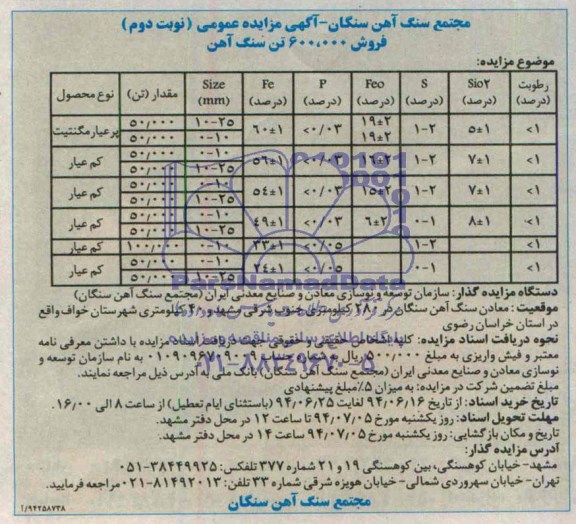 مجتمع سنگ آهن سنگان-آگهی مزایده عمومی (نوبت دوم)
فروش ۶۰۰،۰۰۰ تن سنگ آهن
موضوع مزایده:
نوع محصول مقدار (تن) Size (mm) Fe (درصد) P (درصد) Feo (درصد) S (درصد) Sio۲ (درصد) رطوبت (درصد)
پرعیار مگنتیت ۵۰٫۰۰۰ ۱۰-۲۵ ۶۰±۱ <۰/۰۳ ۱۹±۲ ۱-۲ ۵±۱ <۱
۵۰٫۰۰۰ ۰-۱۰ ۱۹±۲
کم عیار ۵۰٫۰۰۰ ۰-۱۰ ۵۶±۱ <۰/۰۳ ۱۶±۲ ۱-۲ ۷±۱ <۱
۵۰٫۰۰۰ ۱۰-۲۵
کم عیار ۵۰٫۰۰۰ ۰-۱۰ ۵۴±۱ <۰/۰۳ ۱۵±۲ ۱-۲ ۷±۱ <۱
۵۰٫۰۰۰ ۱۰-۲۵
کم عیار ۵۰٫۰۰۰ ۰-۱۰ ۴۹±۱ <۰/۰۳ ۶±۲ ۰-۱ ۸±۱ <۱
۵۰٫۰۰۰ ۱۰-۲۵
کم عیار ۱۰۰٫۰۰۰ ۰-۱۰ ۳۳±۱ <۰/۰۵ ۱-۲ <۱
کم عیار ۵۰٫۰۰۰ ۰-۱۰ ۲۴±۱ <۰/۰۵ ۰-۱ <۱
۵۰٫۰۰۰ ۱۰-۲۵
ParsNamadData
دستگاه مزایده گذار: سازمان توسعه و نوسازی معادن و صنایع معدنی ایران (مجتمع سنگ آهن سنگان)
موقعیت: معادن سنگ آهن سنگان در ۲۸۰ کیلومتری جنوب شرقی مشهد و ۴۰ کیلومتری شهرستان خواف واقع
در استان خراسان رضوی
نحوه دریافت اسناد مزایده: کلیه اشخاص حقیقی و حقوقی جهت دریافت اسناد مزایده با داشتن معرفی نامه
معتبر و فیش واریزی به مبلغ ۵۰۰٫۰۰۰ ریال به شماره حساب ۰۱۰۹۰۹۶۷۱۹۰۰۹ به نام سازمان توسعه و
نوسازی معادن و صنایع معدنی ایران (مجتمع سنگ آهن سنگان) بانک ملی به آدرس ذیل مراجعه نمایند.
۰۲۱-۸۸۳۴۹۶۷۰-۵
مبلغ تضمین شرکت در مزایده: به میزان ۵٪ مبلغ پیشنهادی
تاریخ خرید اسناد: از تاریخ ۹۴٫۰۶٫۱۶ لغایت ۹۴٫۰۶٫۲۵ (باستثنای ایام تعطیل) از ساعت ۸ الی ۱۶٫۰۰.
مهلت تحویل اسناد: روز یکشنبه مورخ ۹۴٫۰۷٫۰۵ تا ساعت ۱۲ در محل دفتر مشهد.
تاریخ و مکان بازگشایی: روز یکشنبه مورخ ۹۴٫۰۷٫۰۵ ساعت ۱۴ در محل دفتر مشهد.
آدرس مزایده گذار:
مشهد- خیابان کوهسنگی، بین کوهسنگی ۱۹ و ۲۱ شماره ۳۷۷ تلفکس: ۳۸۴۴۹۹۲۵-۰۵۱
تهران- خیابان سهروردی شمالی- خیابان هویزه شرقی شماره ۳۳ تلفن: ۸۱۴۹۲۰۱۳-۰۲۱ مراجعه فرمایید.
مجتمع سنگ آهن سنگان
۹۴۲۵۸۷۳۸/آ